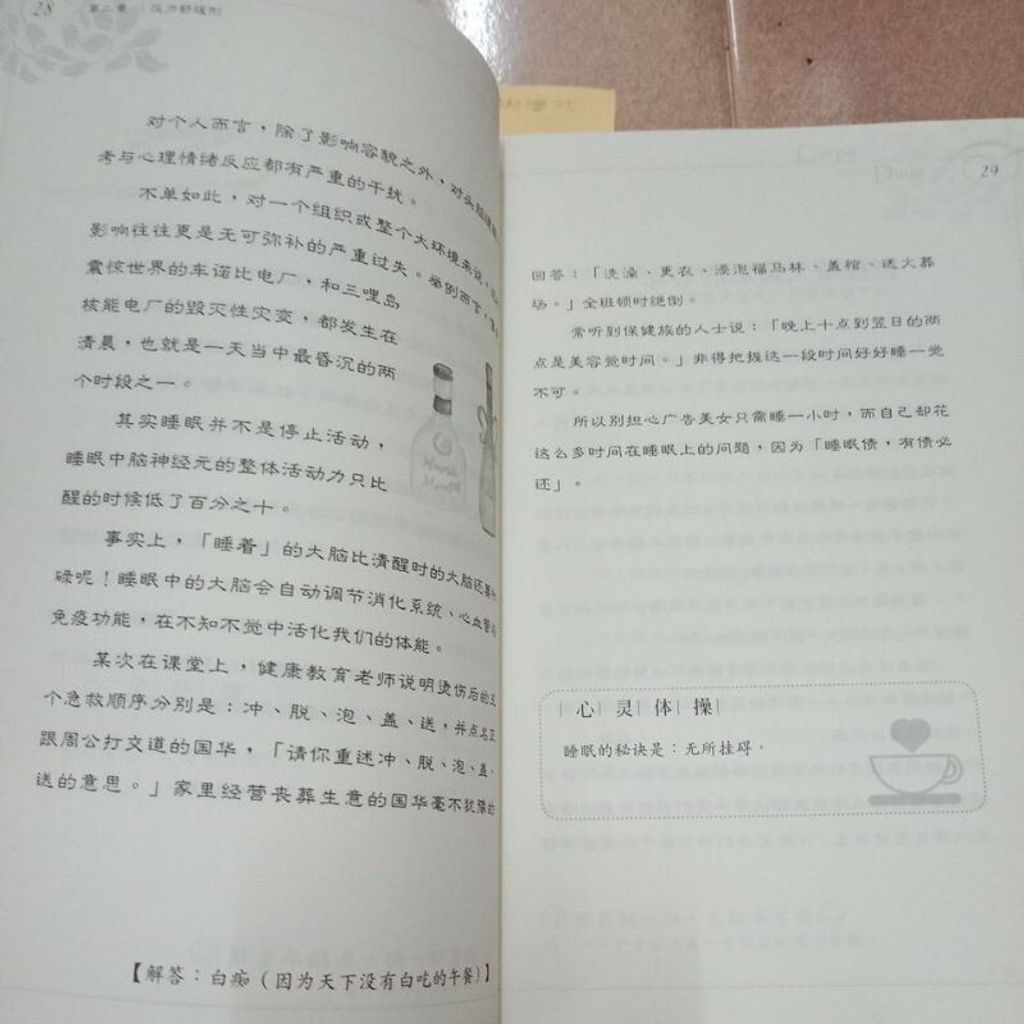 28 第二章 压力舒缓剂
对个人而言，除了影响容貌之外，对头脑
考与心理情绪反应都有严重的干扰。
不单如此，对一个组织或整个大环境来说，
影响往往更是无可弥补的严重过失。举例而言，
震惊世界的车诺比电厂，和三哩岛
核能电厂的毁灭性灾变，都发生在
清晨，也就是一天当中最昏沉的两
个时段之一。
其实睡眠并不是停止活动，
睡眠中脑神经元的整体活动力只比
醒的时候低了百分之十。
事实上，「睡着」的大脑比清醒时的大脑还要
碌呢！睡眠中的大脑会自动调节消化系统、心血管与
免疫功能，在不知不觉中活化我们的体能。
某次在课堂上，健康教育老师说明烫伤后的五
个急救顺序分别是：冲、脱、泡、盖、送，并点名正
跟周公打交道的国华，「请你重述冲、脱、泡、盖、
送的意思。」家里经营丧葬生意的国华毫不犹豫的
【解答：白痴（因为天下没有白吃的午餐）】
29
回答：「洗澡、更衣、浸泡福马林、盖棺、送火葬
场。」全班顿时绝倒。
常听到保健族的人士说：「晚上十点到翌日的两
点是美容觉时间。」非得把握这一段时间好好睡一觉
不可。
所以别担心广告美女只需睡一小时，而自己却花
这么多时间在睡眠上的问题，因为「睡眠债，有债必
还」。
心灵体操
睡眠的秘诀是：无所挂碍。